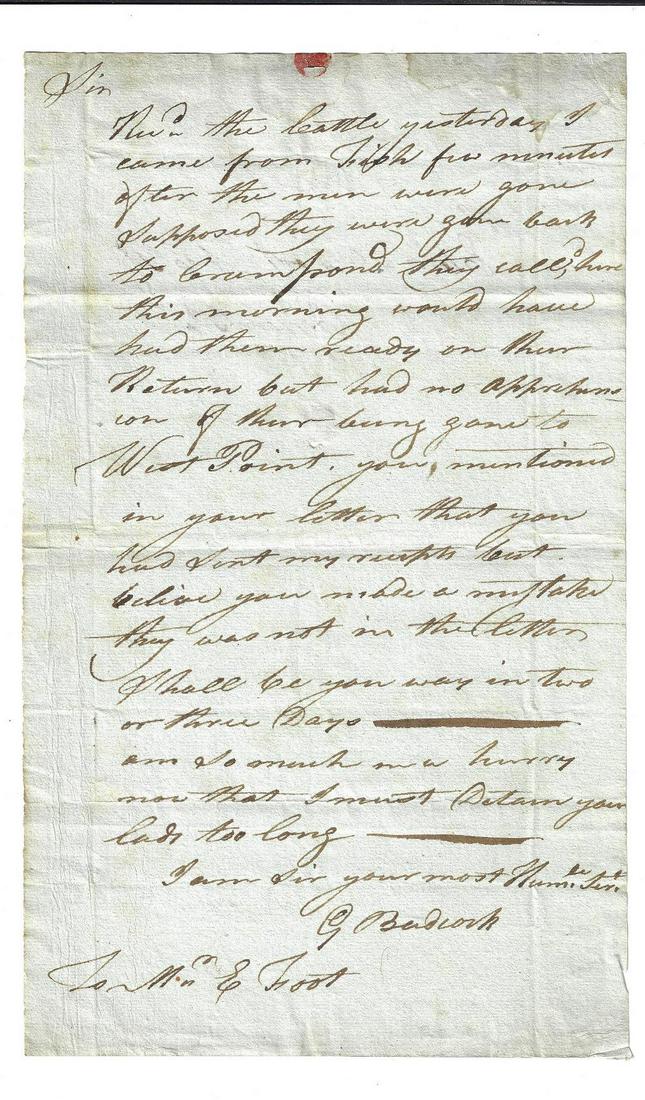 Sir
Rec.d the Cattle yesterday I
came from Fish few minutes
after the men were gone
Supposed they were gone back
to Crumpond. they call,d here
this morning would have
had them ready on their
Return but had no apprehens
ion of their being gone to
West Point. you, mentioned
in your letter that you
had sent my receipts but
belive you made a mistake
they was not in the letter
Shall be you way in two
or three Days
am So much in a hurry
now that I must Detain your
lads too long
I am Sir your most Hum.le Ser.t
G Badcock
To E Foot